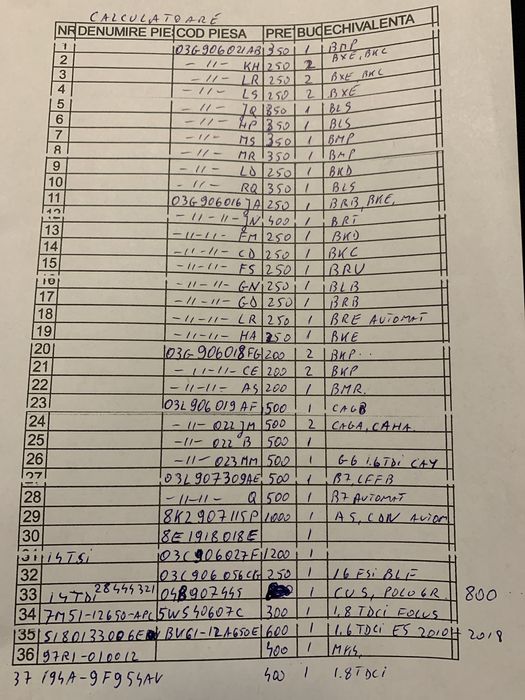 CALCULATOARE
NR DENUMIRE PIE COD PIESA PRE BUC ECHIVALENTA
1 03G906021AB 350 1 BMP
2 -11- KH 250 2 BXE, BKC
3 -11- LR 250 2 BXE BKC
4 -11- LS 250 2 BXE
5 -11- JQ 350 1 BLS
6 -11- MP 350 1 BLS
7 -11- MS 350 1 BMP
8 -11- MR 350 1 BMP
9 -11- LD 250 1 BKD
10 -11- RQ 350 1 BLS
11 03G906016JA 250 1 BRB, BKE,
12 -11-11- JN 400 1 BRT
13 -11-11- FM 250 1 BKD
14 -11-11- CD 250 1 BKC
15 -11-11- FS 250 1 BRU
16 -11-11- GN 250 1 BLB
17 -11-11- GD 250 1 BRB
18 -11-11- LR 250 1 BRE AUTOMAT
19 -11-11- HA 250 1 BKE
20 03G906018FG 200 2 BKP
21 -11-11- CE 200 2 BKP
22 -11-11- AS 200 1 BMR.
23 03L906019AF 500 1 CAGB
24 -11- 022JM 500 2 CAGA, CAHA
25 -11- 022 B 500 1
26 -11- 023MM 500 1 G6 1.6TDi CAY
27 03L907309AE 500 1 B7, CFFB
28 -11-11- Q 500 1 B7 AUTOMAT
29 8K2907115P 1000 1 A5, CDN AUTOM
30 8E1918018E 1
31 14TSi 03C906027F 1200 1
32 03C906056CG 250 1 16 FSi BLF
33 14TDi 28444321 04B907445 1 CUS, POLO 6R 800
34 7M51-12650-APC 5WS40607C 300 1 1.8 TDCi FOCUS
35 S180133006E BV61-12A650E 600 1 1.6TDCi E5 2010-2018
36 97R1-010012 400 1 MK4,
37 194A-9F954AV 400 1 1.8TDCi